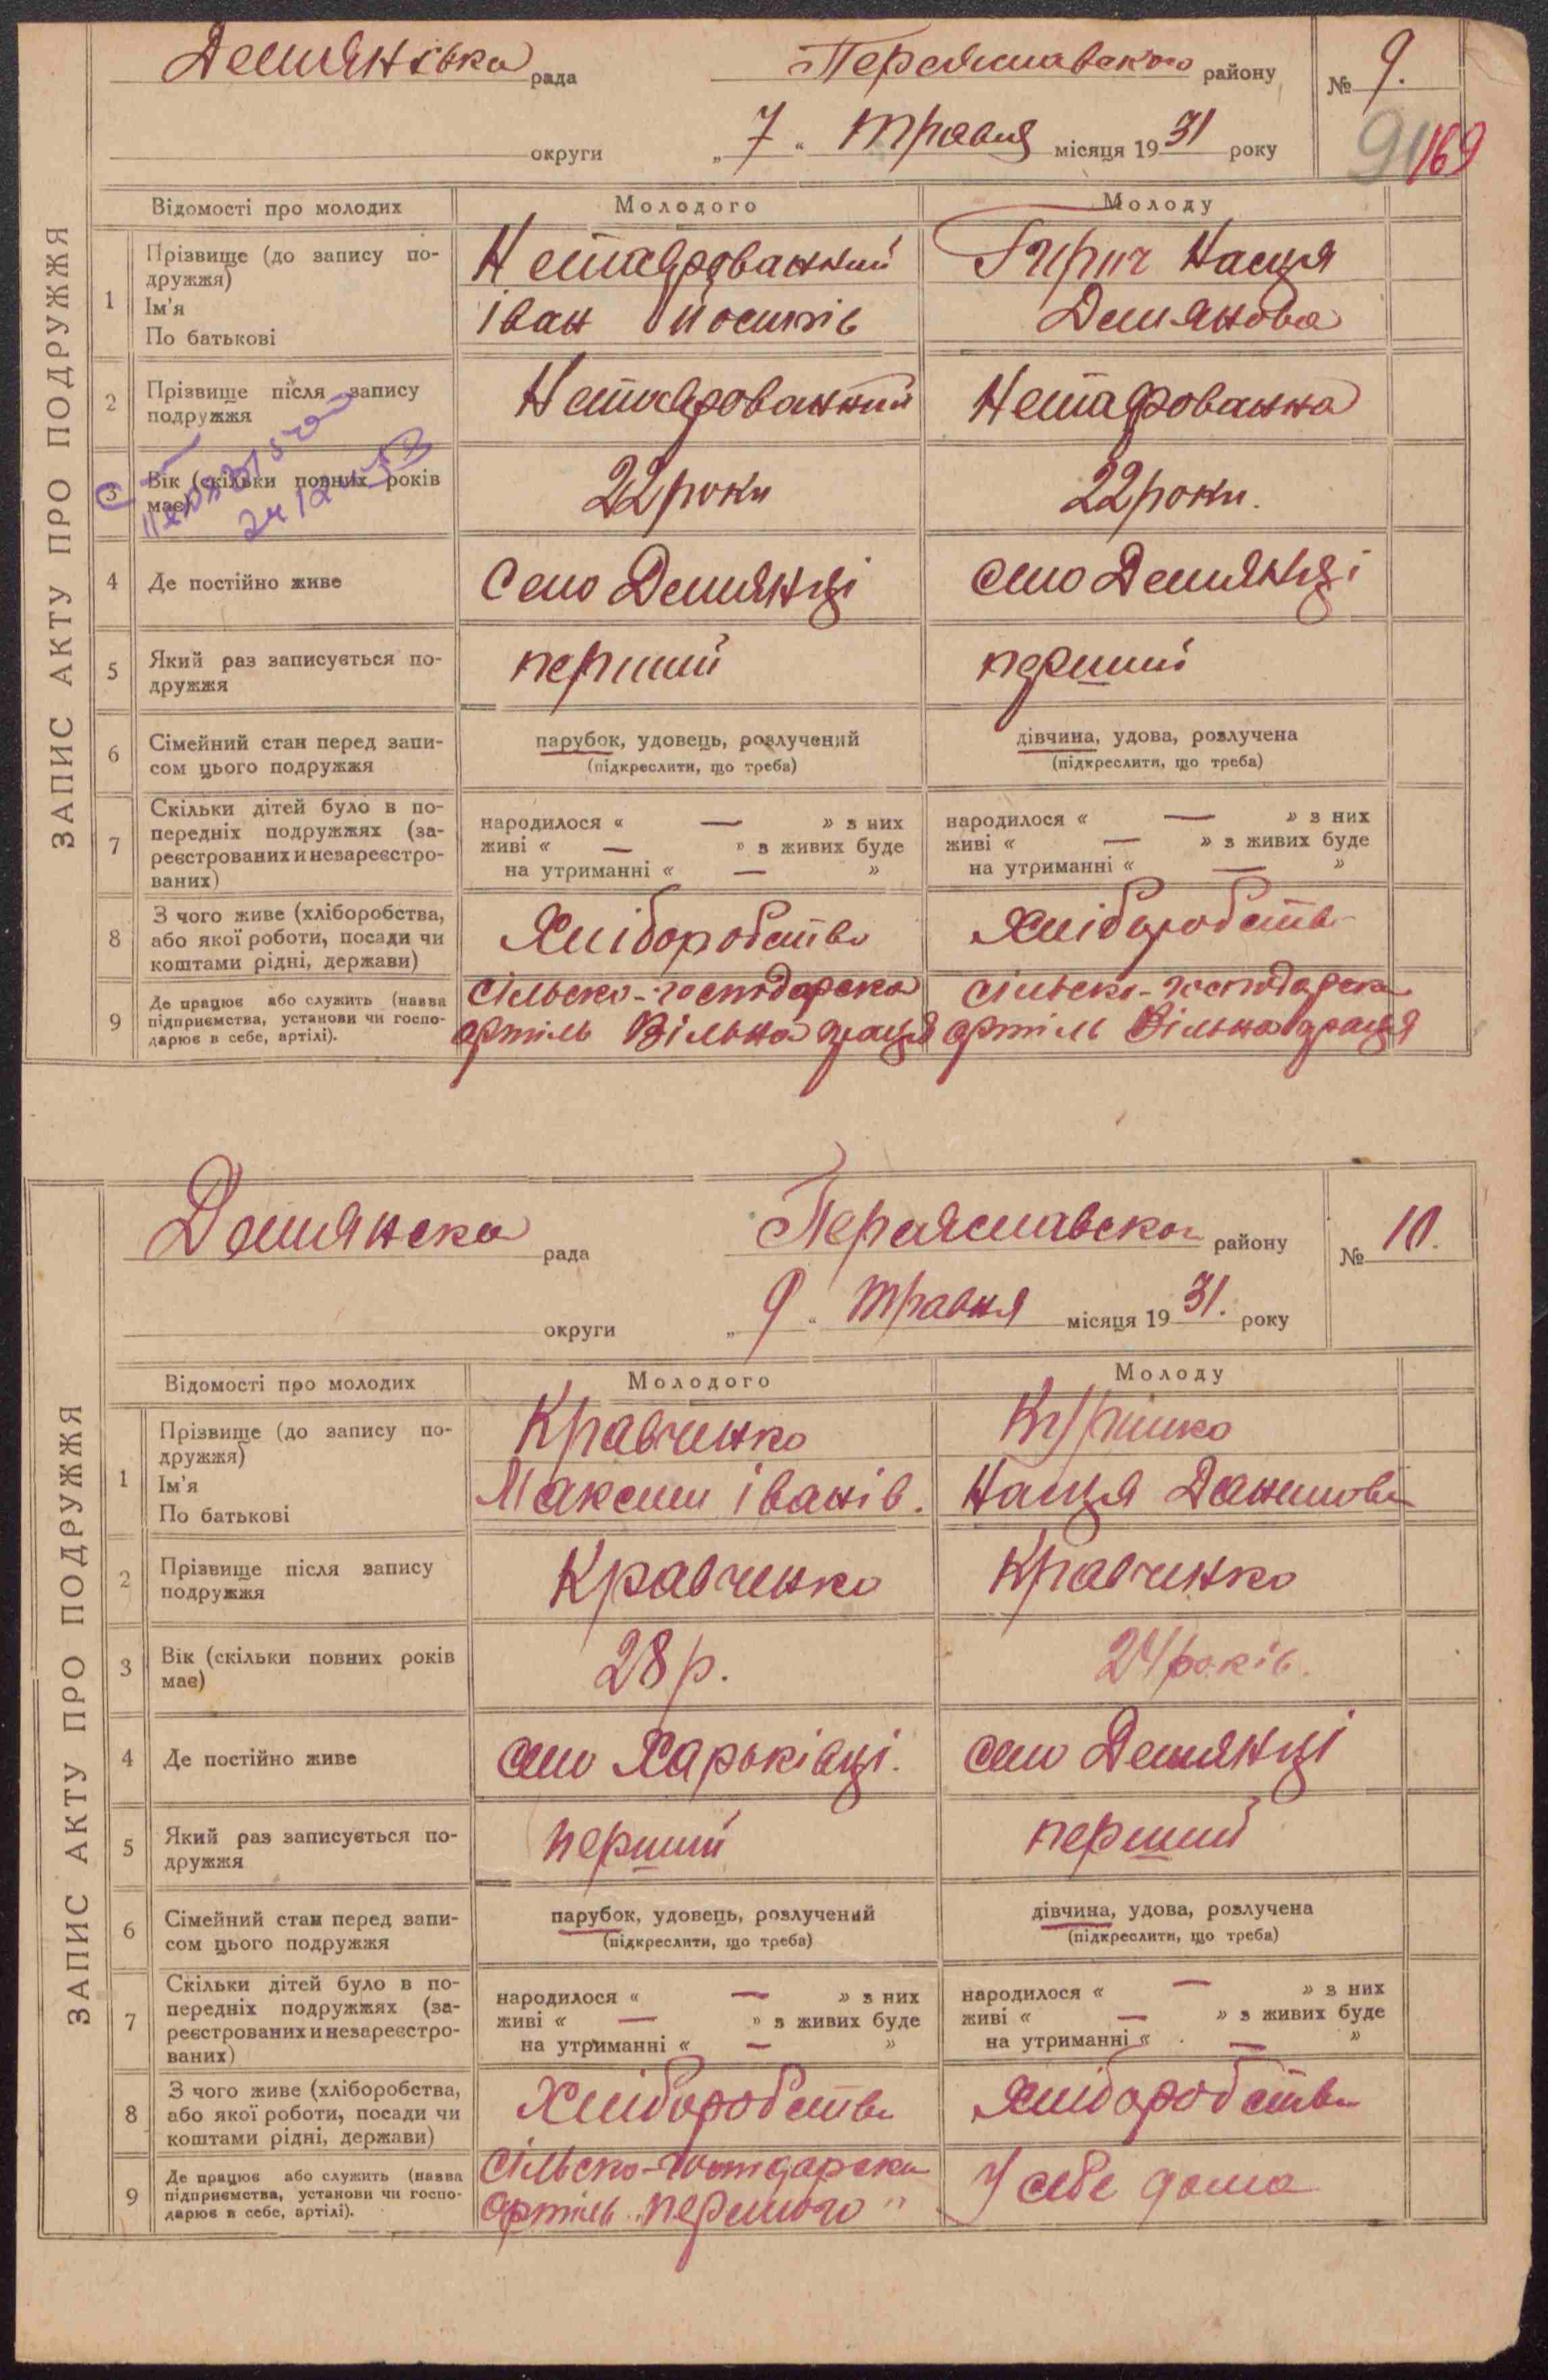 Демянівка рада Переяславського району № 9.
округи „ 7 “ травня місяця 1931 року
91 169
ЗАПИС АКТУ ПРО ПОДРУЖЖЯ
Відомості про молодих Молодого Молоду
1 Прізвище (до запису по-
дружжя)
Ім'я
По батькові
Нетафрованний Гирич Настя
Іван Йосипів Демянова
2 Прізвище після запису
подружжя
Нетафрованний Нетафрованна
3 Вік (скільки повних років
має)
22 роки 22 роки.
4 Де постійно живе Село Демянці село Демянці
5 Який раз записується по-
дружжя
перший перший
6 Сімейний стан перед запи-
сом цього подружжя
парубок, удовець, розлучений дівчина, удова, розлучена
(підкреслити, що треба) (підкреслити, що треба)
7 Скільки дітей було в по-
передніх подружжях (за-
реєстрованих и незареєстро-
ваних)
народилося « — » з них народилося « — » з них
живі « — » з живих буде живі « — » з живих буде
на утриманні « — » на утриманні « — »
8 З чого живе (хліборобства,
або якої роботи, посади чи
коштами рідні, держави)
Хліборобство Хліборобств
9 Де працює або служить (назва
підприємства, установи чи госпо-
дарює в себе, артілі).
сільсько-господарска сільсько-господарска
артіль Вільна праця артіль Вільна праця
Демянска рада Переяславског району № 10.
округи „ 9 “ травня місяця 1931. року
ЗАПИС АКТУ ПРО ПОДРУЖЖЯ
Відомості про молодих Молодого Молоду
1 Прізвище (до запису по-
дружжя)
Ім'я
По батькові
Кравченко
Максим Іванів. Настя Данилова
2 Прізвище після запису
подружжя
Кравченко Кравченко
3 Вік (скільки повних років
має)
28 р. 24 років.
4 Де постійно живе село Харьківці. село Демянці
5 Який раз записується по-
дружжя
перший перший
6 Сімейний стан перед запи-
сом цього подружжя
парубок, удовець, розлучений дівчина, удова, розлучена
(підкреслити, що треба) (підкреслити, що треба)
7 Скільки дітей було в по-
передніх подружжях (за-
реєстрованих и незареєстро-
ваних)
народилося « — » з них народилося « — » з них
живі « — » з живих буде живі « — » з живих буде
на утриманні « — » на утриманні « — »
8 З чого живе (хліборобства,
або якої роботи, посади чи
коштами рідні, держави)
Хліборобство хліборобство
9 Де працює або служить (назва
підприємства, установи чи госпо-
дарює в себе, артілі).
сільско-господарска У себе дома
артіль „першого"